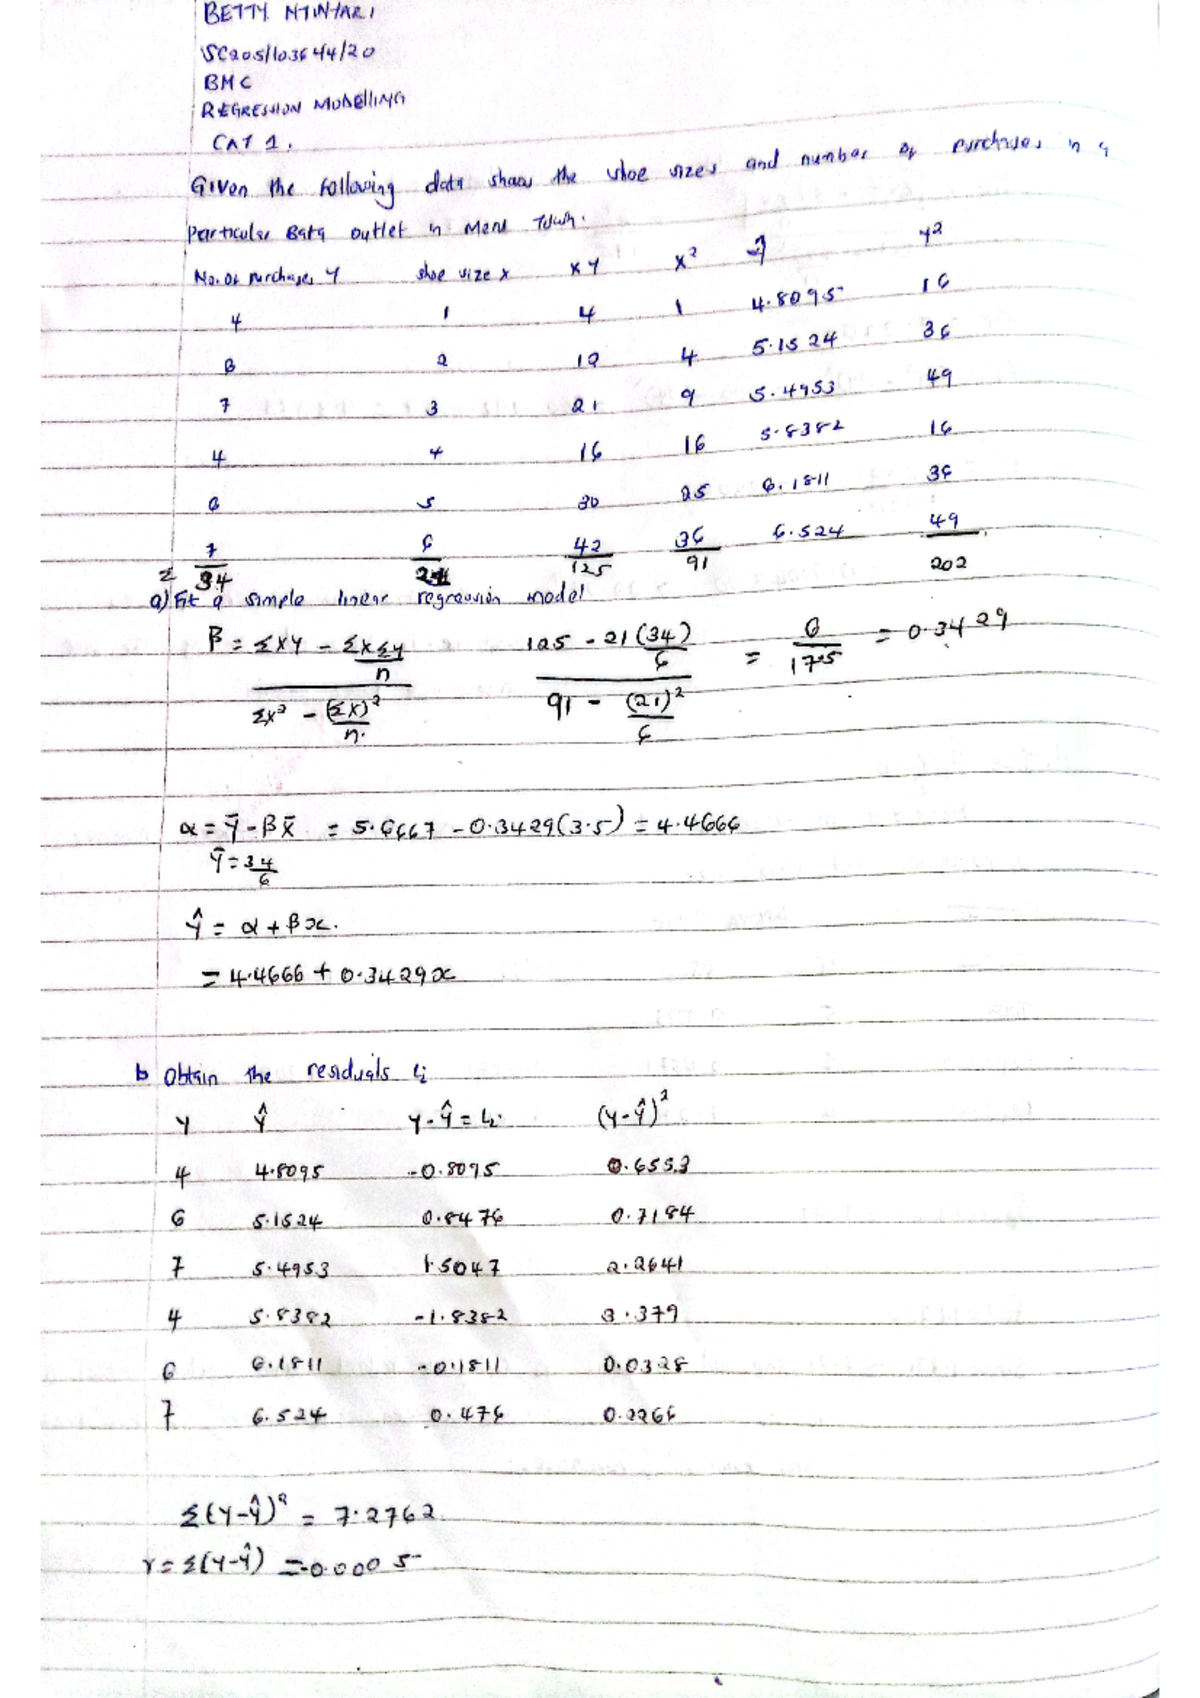 BETTY NTINYARI
SC205/103644/20
BMC
REGRESSION MODELLING
CAT 1.
Given the following data shows the shoe sizes and number of purchases in a
particular Bata outlet in Meru Town.
No. of purchases Y shoe size x XY X² Ŷ Y²
4 1 4 1 4.8095 16
6 2 12 4 5.1524 36
7 3 21 9 5.4953 49
4 4 16 16 5.8382 16
6 5 30 25 6.1811 36
7 6 42 36 6.524 49
Σ 34 21 125 91 202
a) Fit a simple linear regression model
β = ΣXY - ΣXΣY/n / ΣX² - (ΣX)²/n. 125 - 21(34)/6 / 91 - (21)²/6 = 6/17.5 = 0.3429
α = Ȳ - βX̄ = 5.6667 - 0.3429(3.5) = 4.4666
Ȳ = 34/6
Ŷ = α + βx.
= 4.4666 + 0.3429x
b Obtain the residuals ei
Y Ŷ Y-Ŷ = ei (Y-Ŷ)²
4 4.8095 -0.8095 0.6553
6 5.1524 0.8476 0.7184
7 5.4953 1.5047 2.2641
4 5.8382 -1.8382 3.379
6 6.1811 -0.1811 0.0328
7 6.524 0.476 0.2266
Σ(Y-Ŷ)² = 7.2762
r = Σ(Y-Ŷ) = -0.0005